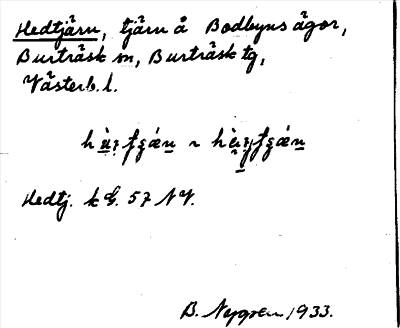 Hedtjärn, tjärn å Bodbyns ägor,
Burträsk sn, Burträsk tg,
Västerb. l.
Hedtj. k bl. 57 NV.
B. Nygren 1933.